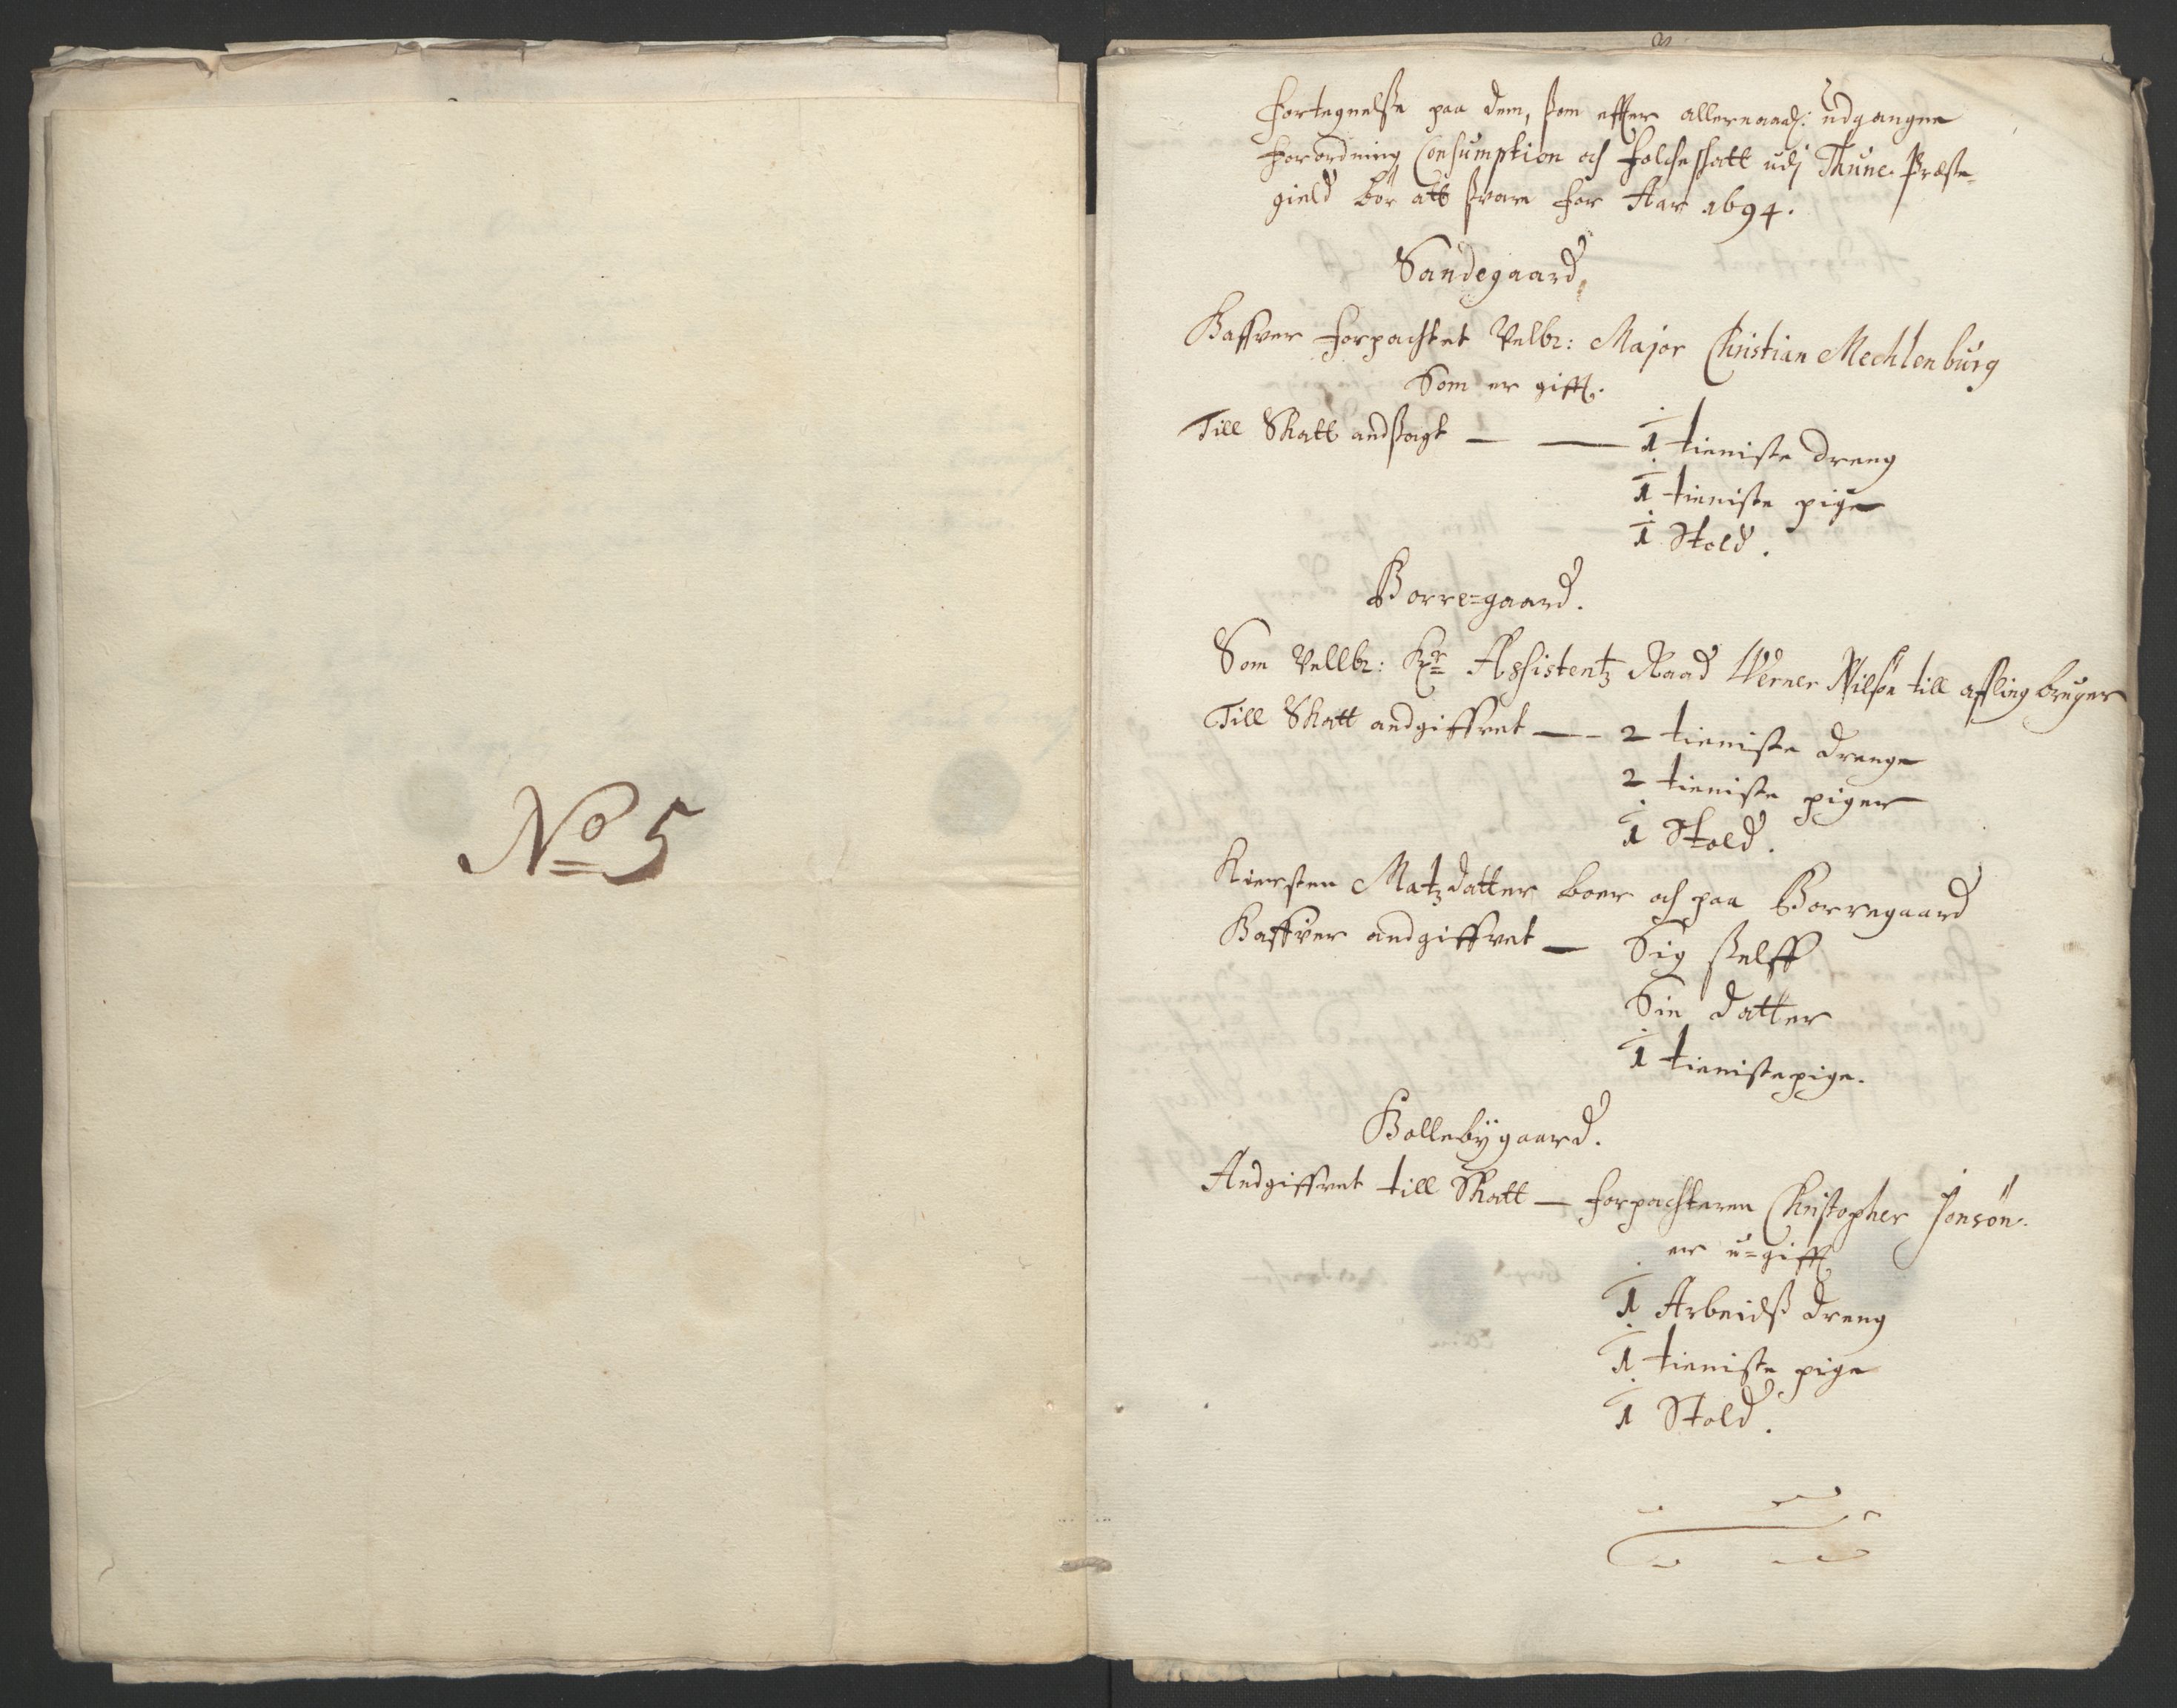 No 5
Fortegnelse paa dem, som efter allernaad: udgangne
Forordning Consumption och Folcheskatt udj Thune Præste-
gield bør att svare for Aar 1694.
Sandegaard,
Haffver forpachtet Velbr: Major Christian Mechlenburg
Som er gifft.
Till Skatt andsagt — — 1 tieniste dreng
1 tieniste pige
1 Stold.
Borre=gaard.
Som Vellbr: Hr Assistentz Raad Werner Nilsøn till affling bruger
Till Skatt andgiffvet — 2 tieniste drenge
2 tieniste piger
1 Stold.
Kiersten Matzdatter boer och paa Borregaard
Haffver andgiffvet — Sig selff
Sin datter
1 tienistepige.
Hallebÿgaard.
Andgiffvet till Skatt — forpachteren Christopher Jonsøn.
er u=gifft
1 Arbeidss dreng
1 tieniste pige
1 Stold.